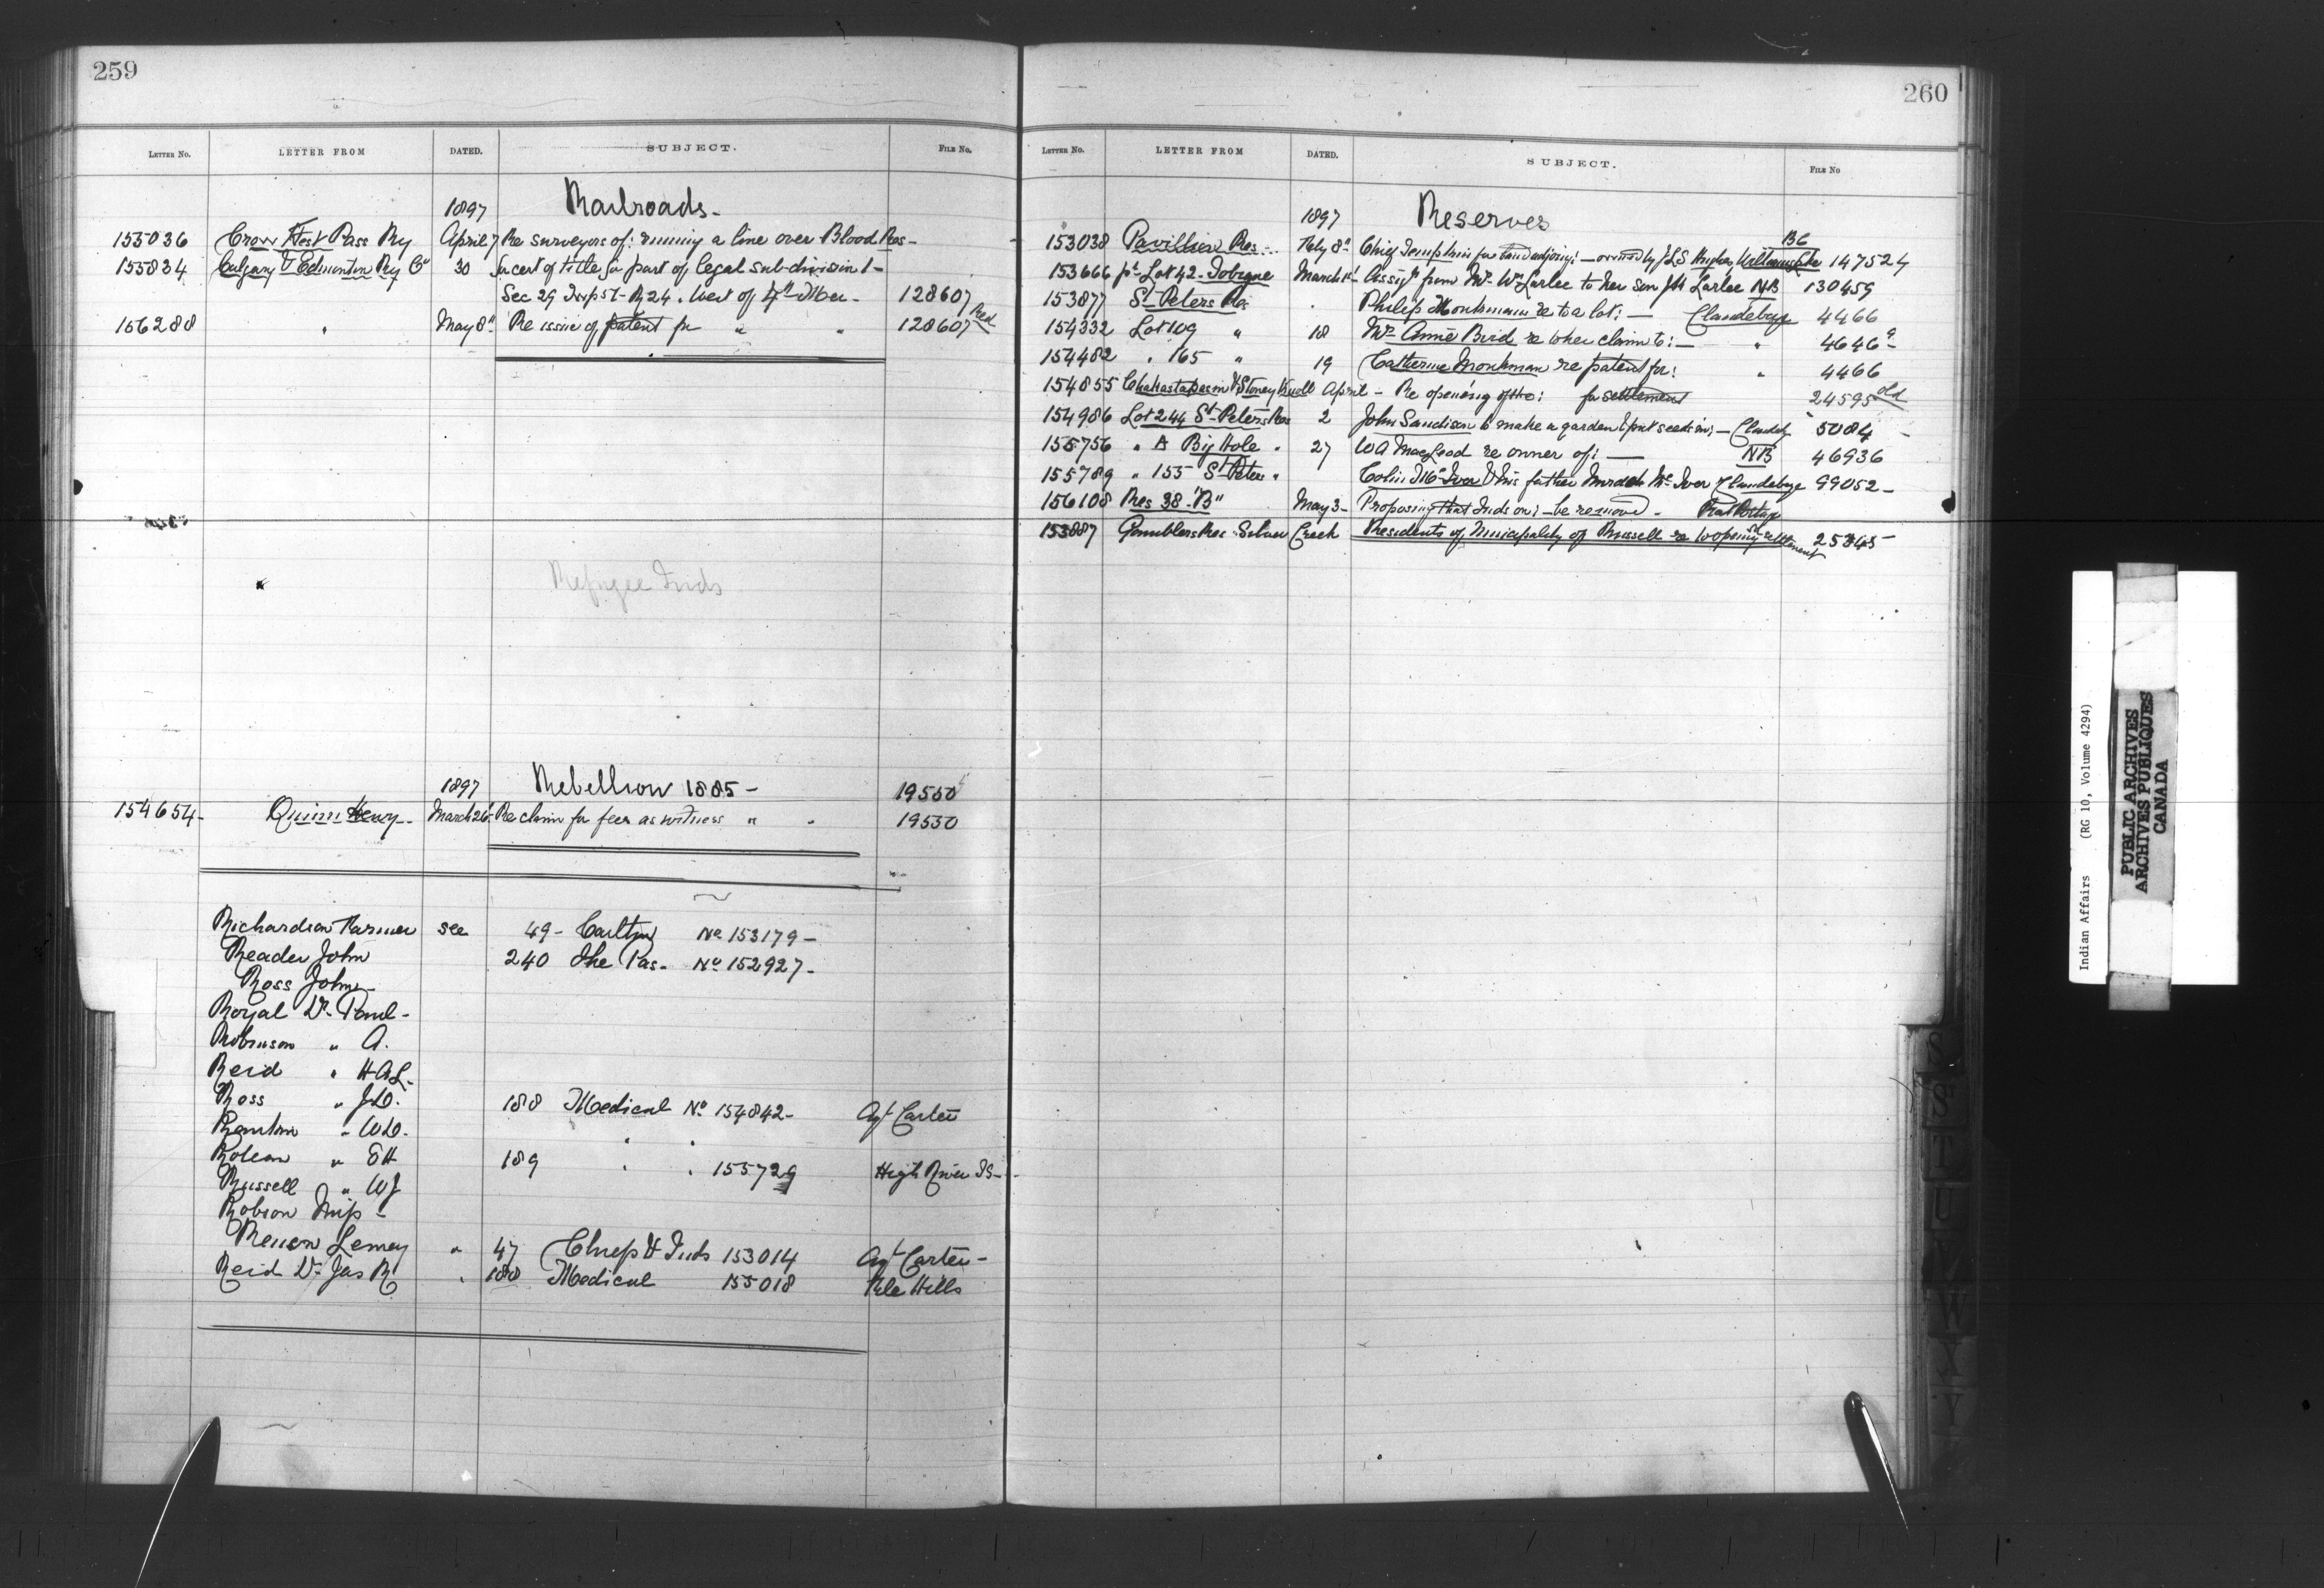 259
LETTER NO. LETTER FROM DATED. SUBJECT. FILE NO.
1897 Railroads-
155036 Crow Nest Pass Ry April 7 Re surveyors of: running a line over Blood Res-
155834 Calgary & Edmonton Ry Co 30 for cert of title for part of legal sub-division 1-
Sec 29 Twp 51- R 24. West of 4th Mer- 128607
156288 " May 8" Re issue of patent for " " 128607 Red
Refugee Inds
1897 Rebellion 1885- 19550
154654- Quinn Henry- March 26- Re claim for fees as witness " " 19550
Richardson Farmer see 49- Carlton No 153179-
Reader John 240 The Pas- No 152927-
Ross John-
Royal Dr. Paul-
Robinson " A.
Reid " H A L-
Ross " J D. 188 Medical No 154842- Agt Carter
" W D.
" E H 189 " " 155729 High River IS-
Russell " W J
Robson
Lemay " 47 Chiefs & Inds 153014 Agt Carter-
Reid Dr Jas R " 188 Medical 155018 File Hills
260
LETTER NO. LETTER FROM DATED. SUBJECT. FILE NO
1897 Reserves
BC
153038 Pavillion Res- Feby 8" Chief for land adjoing:- owned by J L S Hughes Williams Lake 147524
153666 pt Lot 42- Tobique March 1st Assigt from Mrs Wm Larlee to her son J H Larlee NB 130459
153877 St Peters Res " Philip Monkman re to a lot:- Clandeboye 4466
154332 Lot 109 " 18 Mrs Annie Bird re to her claim to:- " 4646 a-
154482 " 165 " 19 Catherine Monkman re patent for: " 4466
154855 Chakastapasin & Stoney Knoll April - Re opening of the: for settlement 24595 old
154986 Lot 244 St Peters Res 2 John Sandison to make a garden & put seeds in:- Clandeb 5084 -
155756 " A Big Hole " 27 W A MacLeod re owner of:- NB 46936
155789 " 155 St Peter " Colin McIver & his father Murdoch McIver Clandeboye 99052-
156108 Res 38-"B" May 3- Proposing that Inds on:- be removed- Rat Portage
153887 Gamblers Res Silver Creek Residents of Municipality of Russell re to opening for settlement 25845-
S
St
T
U
V
W
X
Y
Indian Affairs (RG 10, Volume 4294)
PUBLIC ARCHIVES
ARCHIVES PUBLIQUES
CANADA